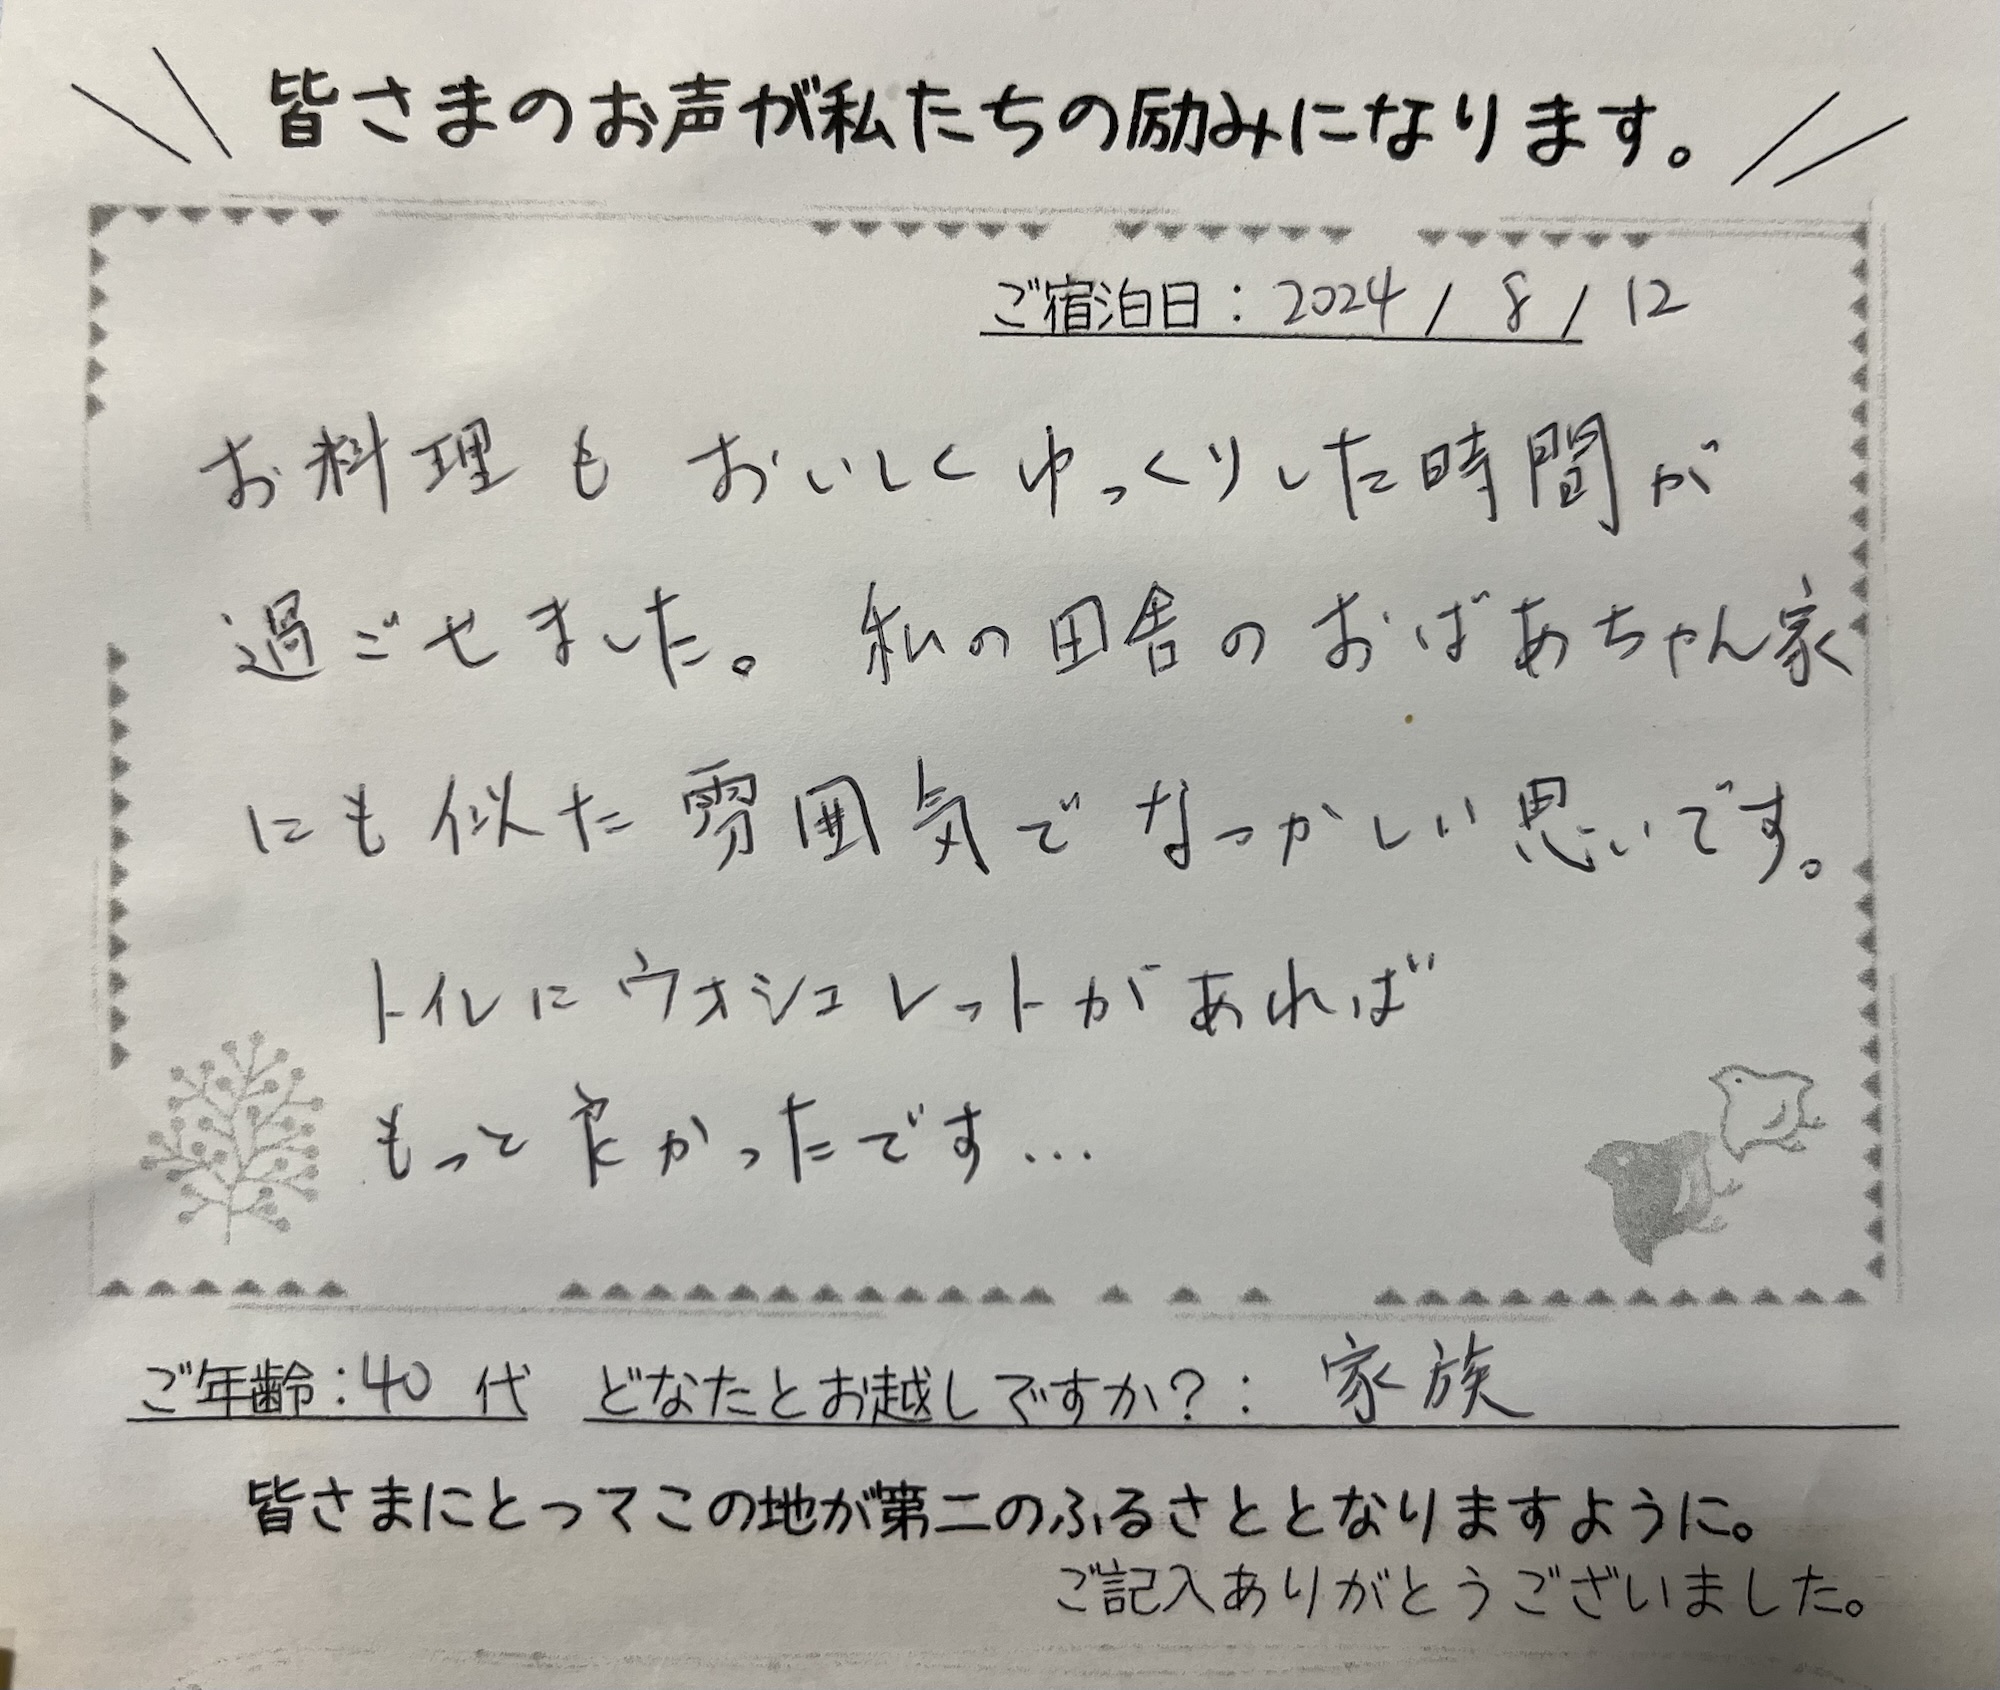 皆さまのお声が私たちの励みになります。
ご宿泊日：2024 / 8 / 12
お料理もおいしくゆっくりした時間が
過ごせました。私の田舎のおばあちゃん家
にも似た雰囲気でなつかしい思いです。
トイレにウオシュレットがあれば
もっと良かったです…
ご年齢：40代 どなたとお越しですか？：家族
皆さまにとってこの地が第二のふるさととなりますように。
ご記入ありがとうございました。